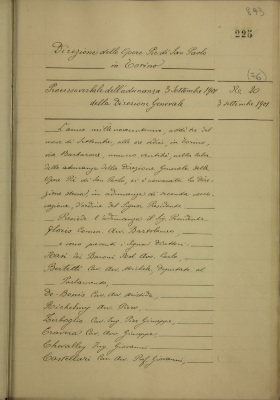 893
225
(26)
Direzione delle Opere Pie di San Paolo
in Torino
Processo verbale dell'adunanza 3 Settembre 1901
della Direzione Generale
No. 20
3 settembre 1901
L'anno millenovecentouno, addì tre del
mese di Settembre, alle ore dieci, in Torino,
via Barbaroux, numero ventidue, nella sala
delle adunanze della Direzione Generale delle
Opere Pie di San Paolo, si è convocata la Dire-
zione stessa, in adunanza di seconda convo-
cazione, d'ordine del Signor Presidente.
Presiede l'adunanza il Sig. Presidente
Floris Comm. Avv. Bartolomeo,
e sono presenti i Signori Direttori:
dei Baroni Carlo,
Cav. Avv. Michele, Deputato al
Parlamento,
De Bonis Cav. Avv.
Avv. Piero,
Cav. Ing. Pier Giuseppe,
Cravera Cav. Avv. Giuseppe,
Chevalley Ing. Giovanni
Castellari Cav. Avv. Prof. Giovanni,